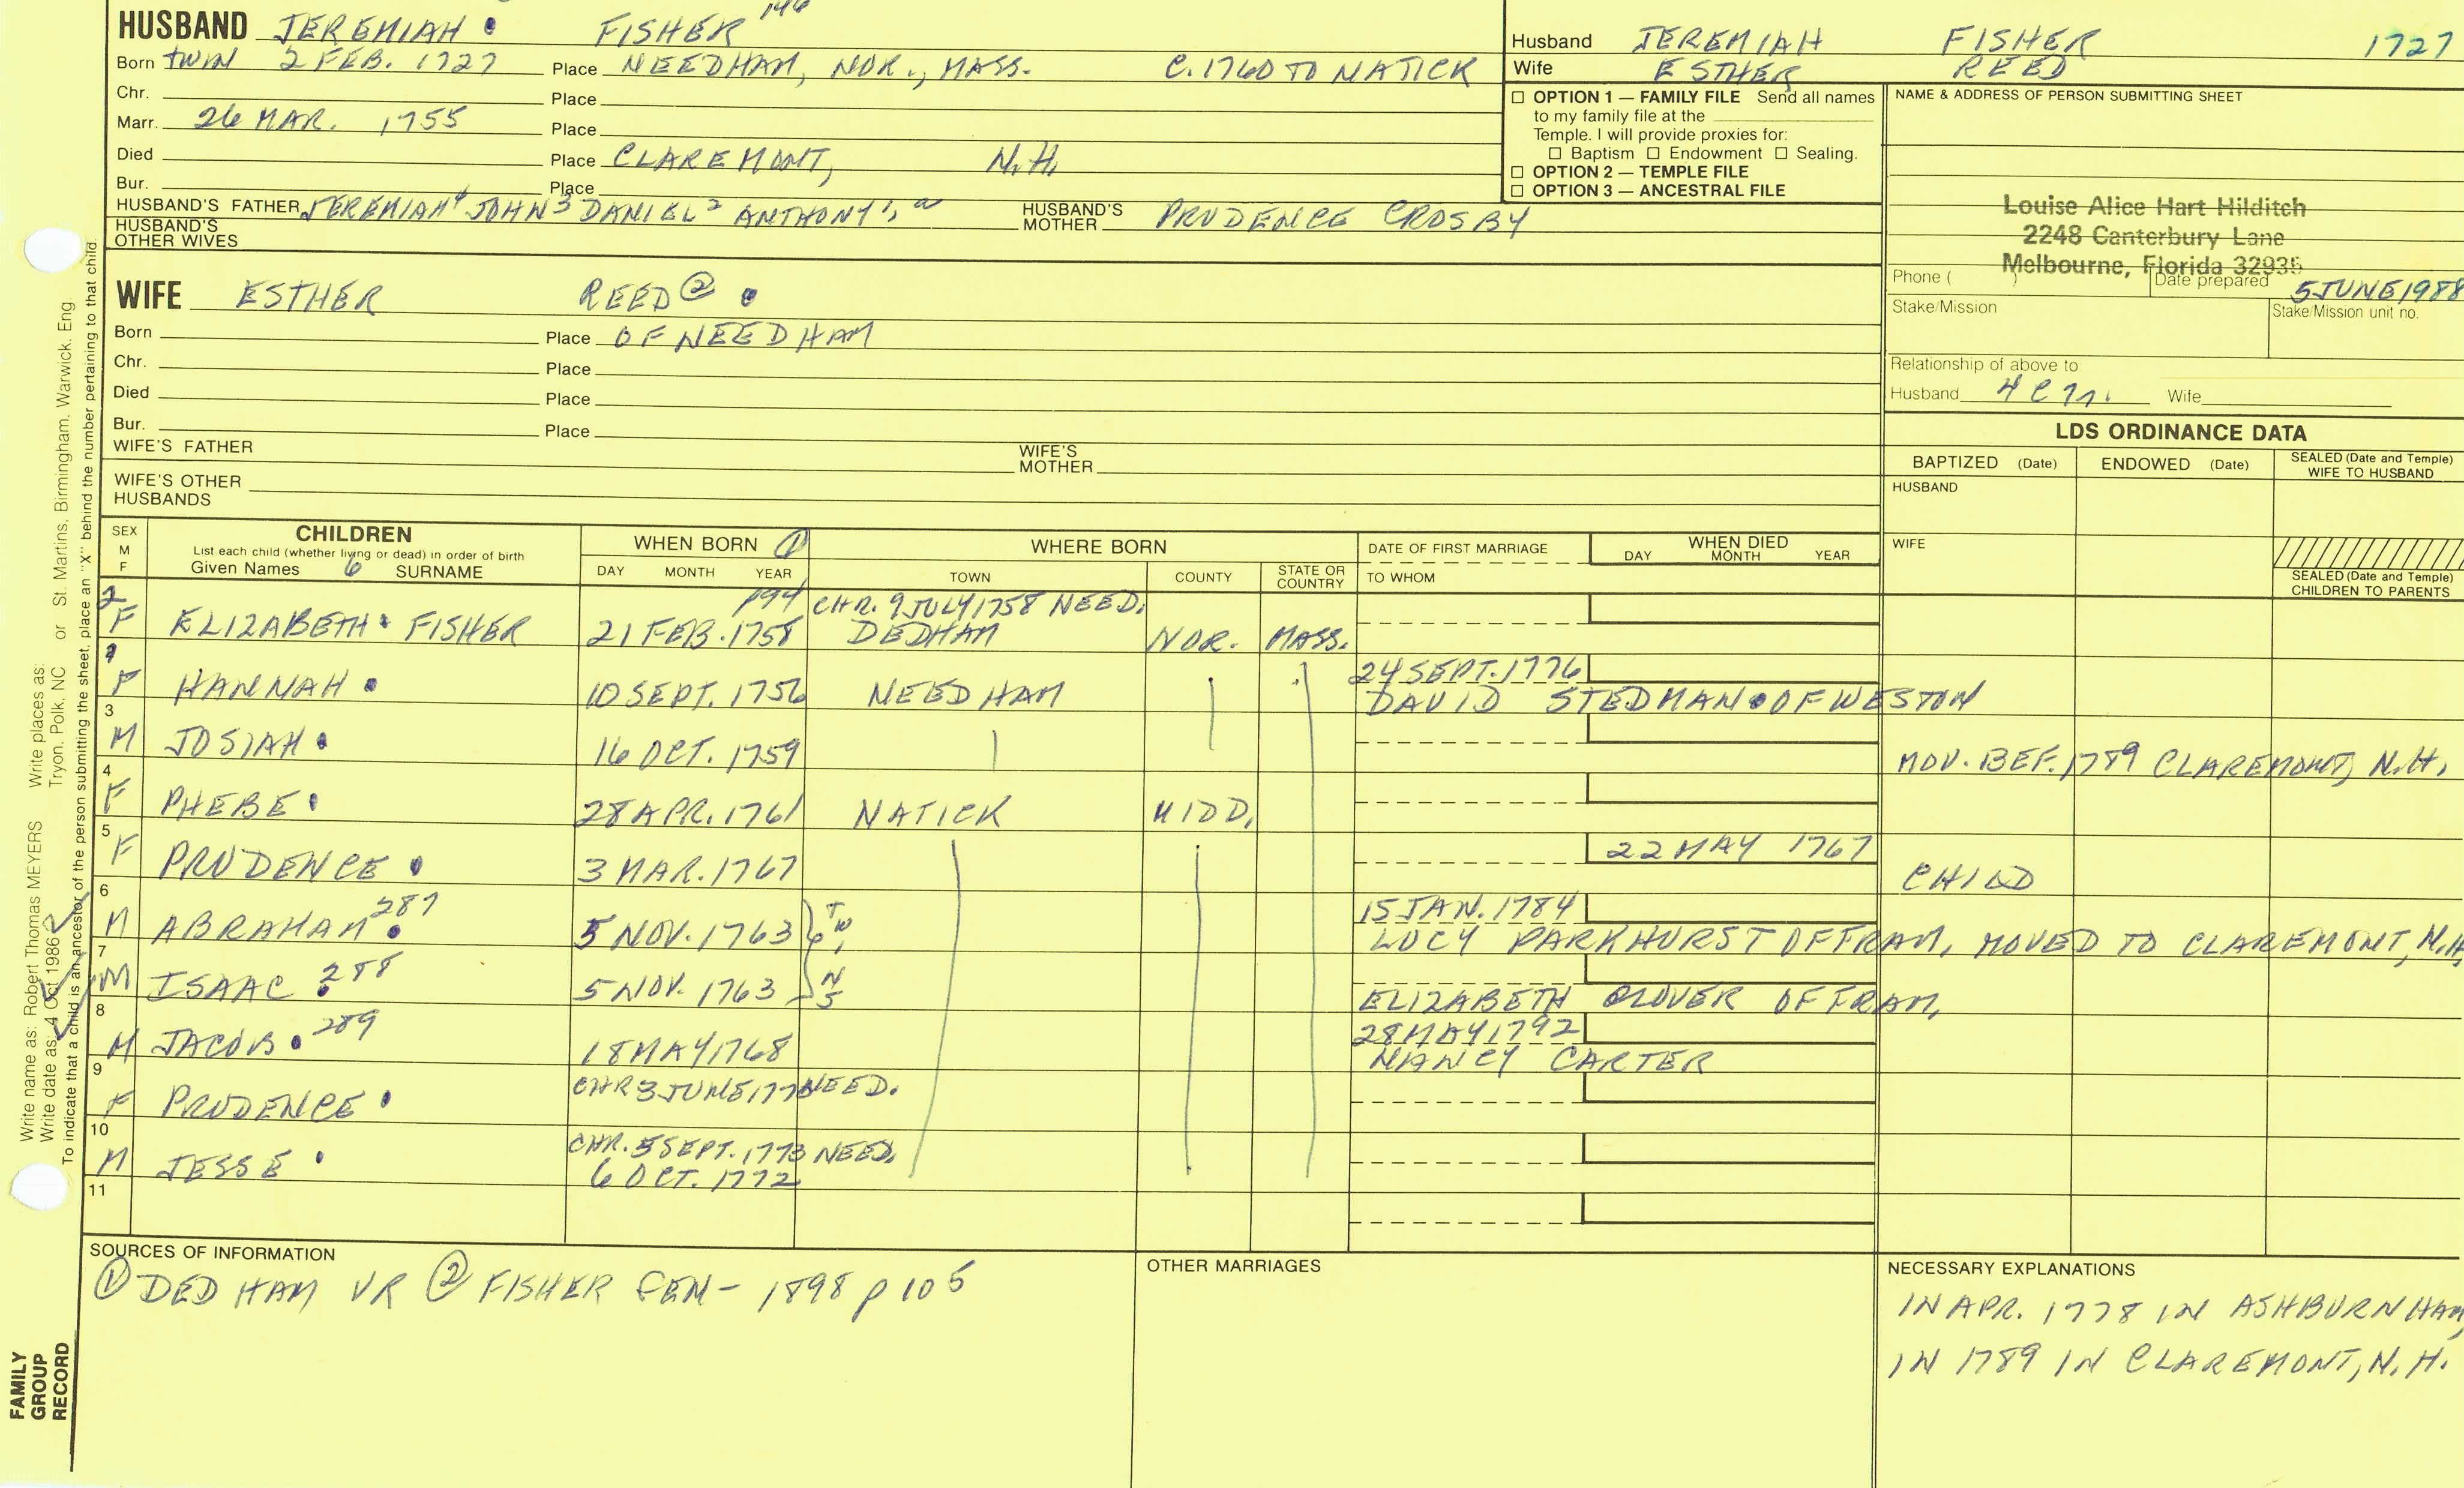 HUSBAND JEREMIAH • FISHER 146
Born TWIN 2 FEB. 1727 Place NEEDHAM, NOR., MASS. C. 1760 TO NATICK
Chr. Place
Marr. 26 MAR. 1755 Place
Died Place CLAREMONT, N.H.
Bur. Place
HUSBAND'S FATHER JEREMIAH4 JOHN3 DANIEL2 ANTHONY1, HUSBAND'S MOTHER PRUDENCE CROSBY
HUSBAND'S OTHER WIVES
WIFE ESTHER REED ② •
Born Place OF NEEDHAM
Chr. Place
Died Place
Bur. Place
WIFE'S FATHER WIFE'S MOTHER
WIFE'S OTHER HUSBANDS
Husband JEREMIAH FISHER 1727
Wife ESTHER REED
☐ OPTION 1 — FAMILY FILE Send all names
to my family file at the
Temple. I will provide proxies for:
☐ Baptism ☐ Endowment ☐ Sealing.
☐ OPTION 2 — TEMPLE FILE
☐ OPTION 3 — ANCESTRAL FILE
NAME & ADDRESS OF PERSON SUBMITTING SHEET
Louise Alice Hart Hilditch
2248 Canterbury Lane
Melbourne, Florida 32935
Phone ( ) Date prepared 5 JUNE 1988
Stake/Mission Stake/Mission unit no.
Relationship of above to
Husband 4 C Wife
LDS ORDINANCE DATA
BAPTIZED (Date) ENDOWED (Date) SEALED (Date and Temple) WIFE TO HUSBAND
HUSBAND
WIFE
SEALED (Date and Temple) CHILDREN TO PARENTS
SEX M F
CHILDREN
List each child (whether living or dead) in order of birth
Given Names 6 SURNAME
WHEN BORN ①
DAY MONTH YEAR
WHERE BORN
TOWN COUNTY STATE OR COUNTRY
DATE OF FIRST MARRIAGE
TO WHOM
WHEN DIED
DAY MONTH YEAR
2 P94 CHR. 9 JULY 1758 NEED.
F ELIZABETH • FISHER 21 FEB. 1758 DEDHAM NOR. MASS.
24 SEPT. 1776
F HANNAH • 10 SEPT. 1756 NEEDHAM DAVID STEDMAN • OF WESTON
3
M JOSIAH • 16 OCT. 1759 MOV. BEF. 1789 CLAREMONT, N.H.
4
F PHEBE • 28 APR. 1761 NATICK MIDD.
5 22 MAY 1767
F PRUDENCE • 3 MAR. 1767 CHILD
6 15 JAN. 1784
M ABRAHAM • 287 5 NOV. 1763 TW LUCY PARKHURST OF FRAM, MOVED TO CLAREMONT, N.H.
7
M ISAAC • 288 5 NOV. 1763 NS ELIZABETH GLOVER OF FRAM.
8 28 MAY 1792
M JACOB • 289 18 MAY 1768 NANCY CARTER
9 CHR 3 JUNE 1770 NEED.
F PRUDENCE •
10 CHR. 5 SEPT. 1773 NEED.
M JESSE • 6 OCT. 1772
11
SOURCES OF INFORMATION
① DEDHAM VR ② FISHER GEN - 1898 p 105
OTHER MARRIAGES
NECESSARY EXPLANATIONS
IN APR. 1778 IN ASHBURNHAM,
IN 1789 IN CLAREMONT, N.H.
Write name as: Robert Thomas MEYERS Write places as: St. Martins, Birmingham, Warwick, Eng
Write date as: 4 Oct 1986 Tryon, Polk, NC or
To indicate that a child is an ancestor of the person submitting the sheet, place an "X" behind the number pertaining to that child.
FAMILY
GROUP
RECORD